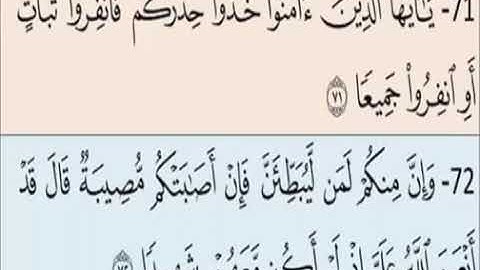 71- يَٰٓأَيُّهَا ٱلَّذِينَ ءَامَنُوا۟ خُذُوا۟ حِذْرَكُمْ فَٱنفِرُوا۟ ثُبَاتٍ
أَوِ ٱنفِرُوا۟ جَمِيعًا ٧١
72- وَإِنَّ مِنكُمْ لَمَن لَّيُبَطِّئَنَّ فَإِنْ أَصَٰبَتْكُم مُّصِيبَةٌ قَالَ قَدْ
أَنْعَمَ ٱللَّهُ عَلَىَّ إِذْ لَمْ أَكُن مَّعَهُمْ شَهِيدًا ٧٢